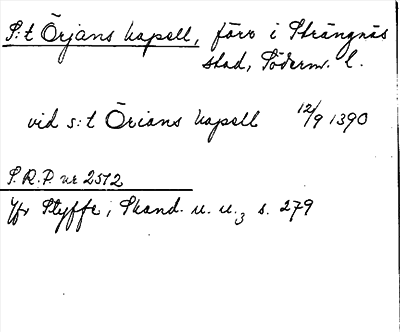 S:t Örjans kapell, förr i Strängnäs
stad, Söderm. l.
vid s:t Örians kapell 12/9 1390
S.R.P. nr 2512
Jfr Styffe, Skand. u. u.3 s. 279